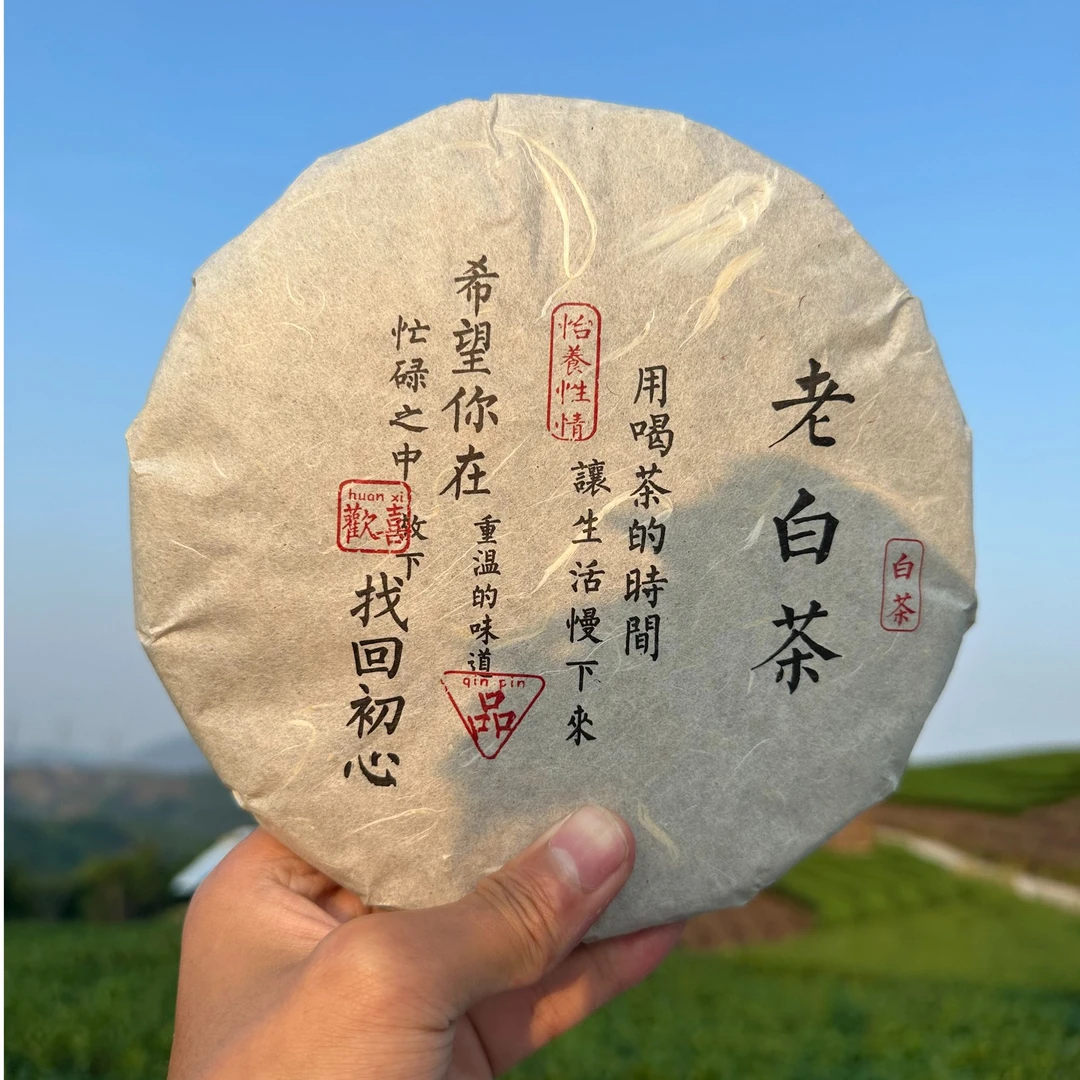 老白茶
白茶
用喝茶的時間
怡養性情
讓生活慢下來
希望你在
重温的味道
qin pin
品
忙碌之中
放下
huan xi
歡喜
找回初心